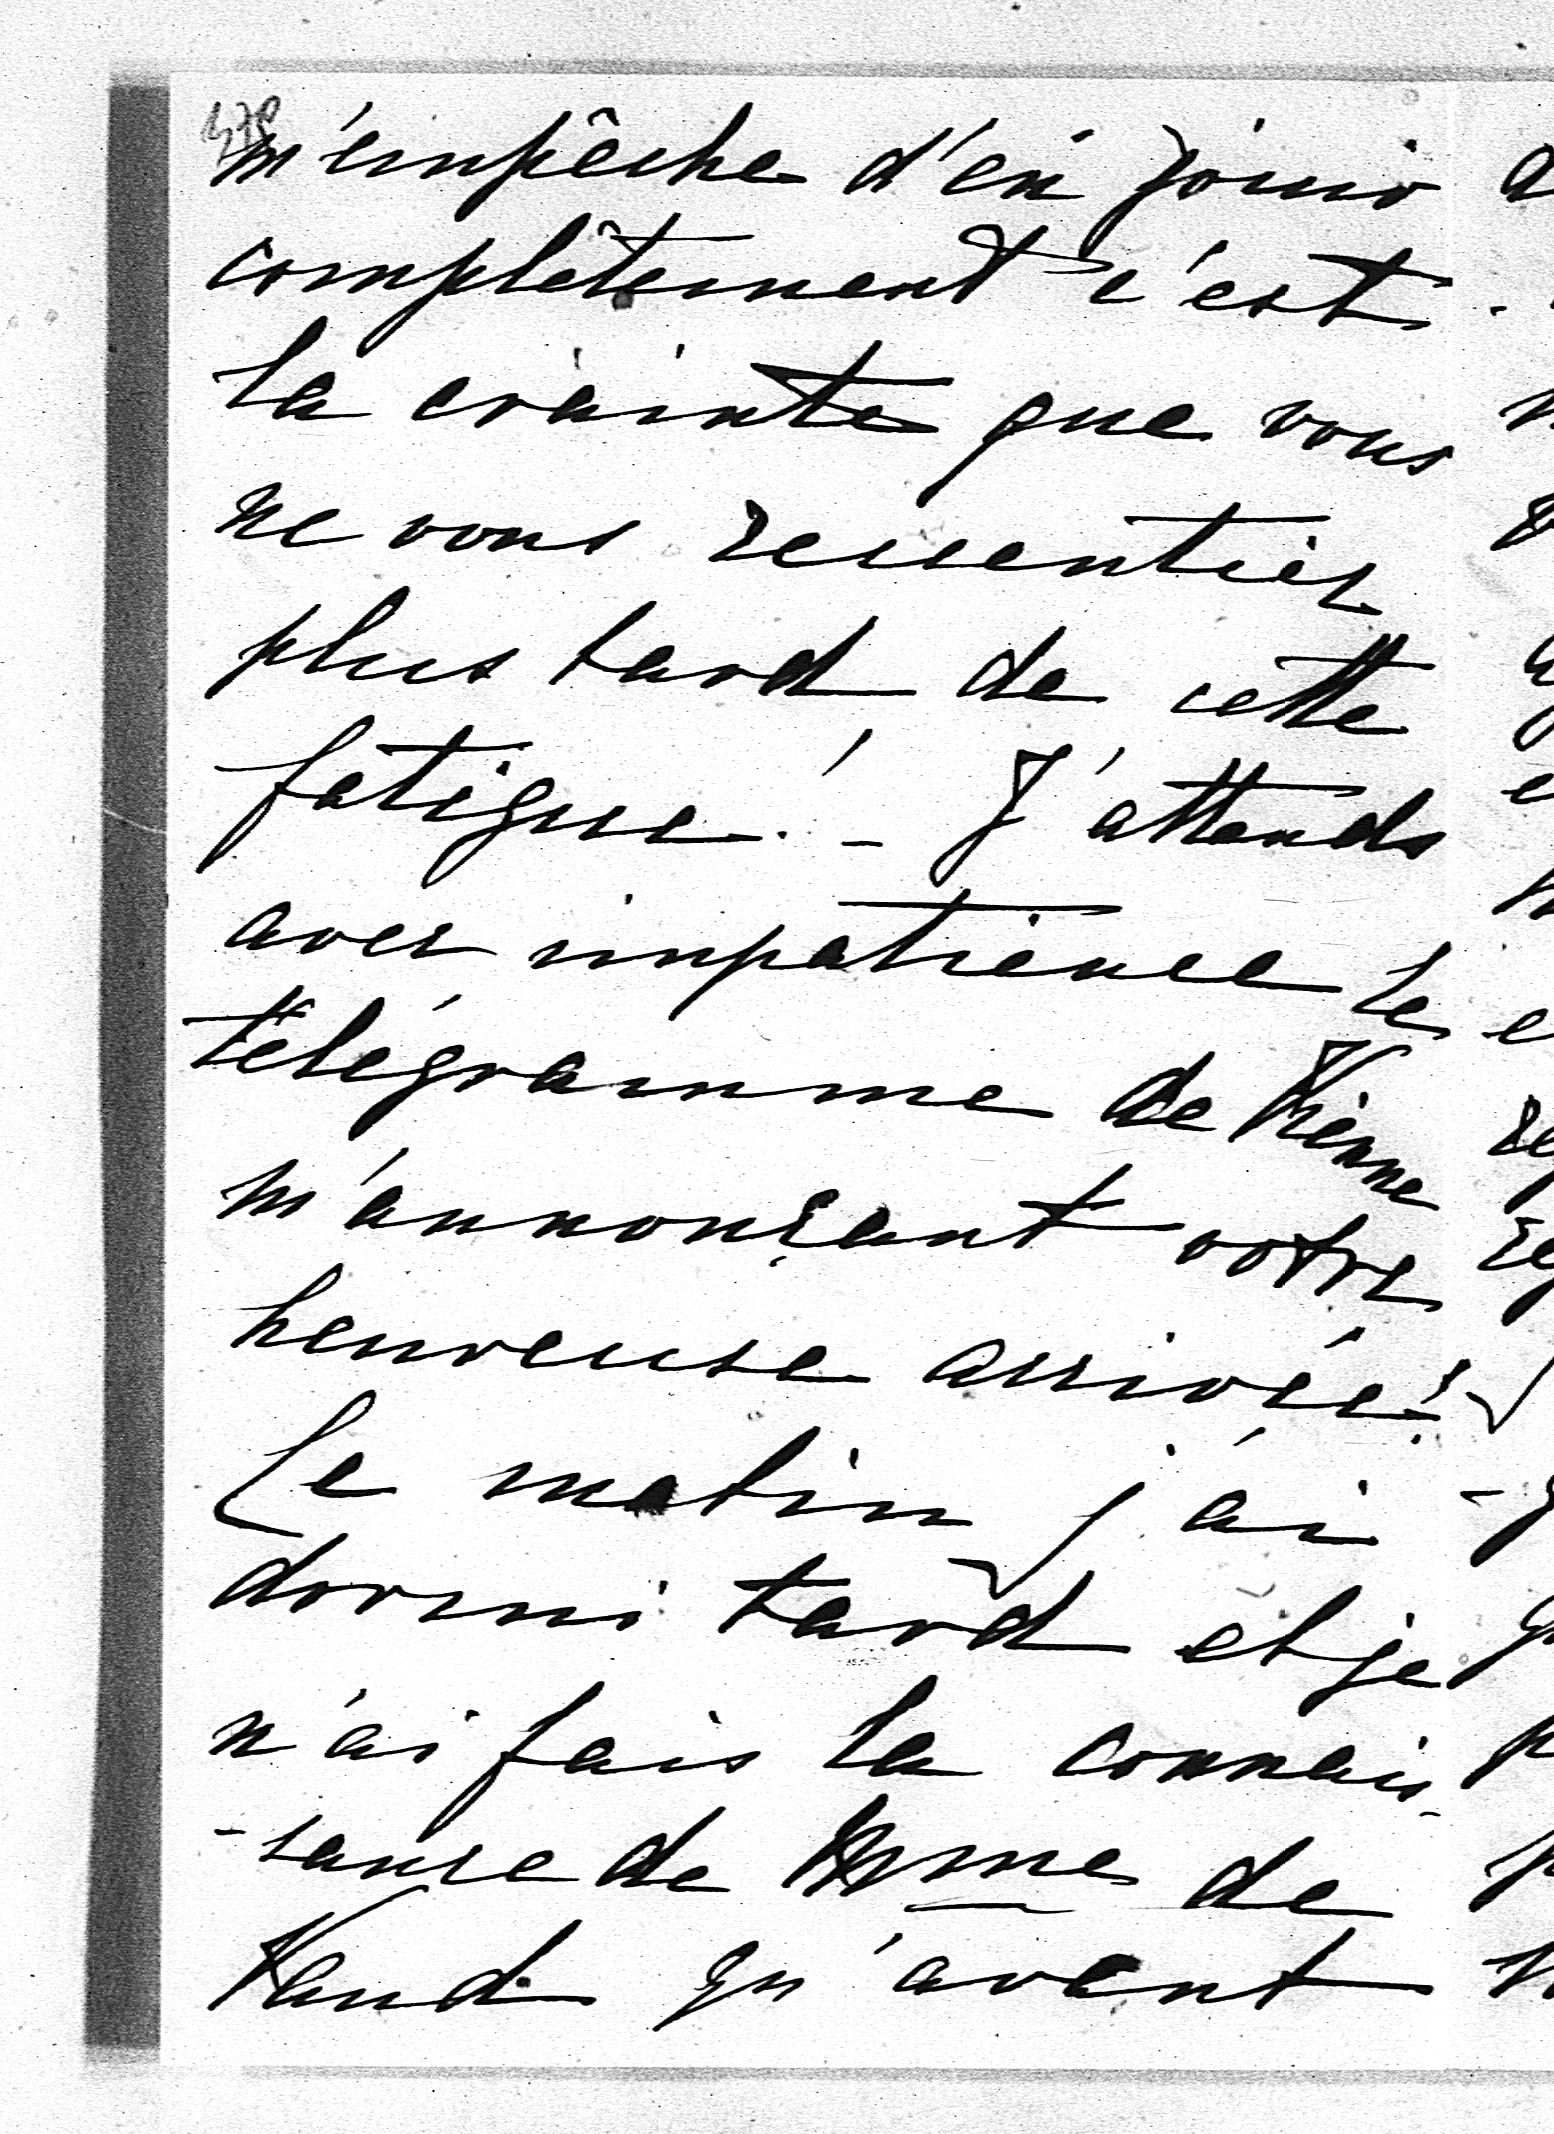 m'empêche d'en jouir
complêtement c'est
la crainte que vous
ne vous ressentiez
plus tard de cette
fatigue! - J'attends
avec impatience le
télégramme de Vienne
m'annonçant votre
heureuse arrivée!
Le matin j'ai
dormi tard et je
n'ai fais la connais-
-sance de Mme de
Vaud qu'avant